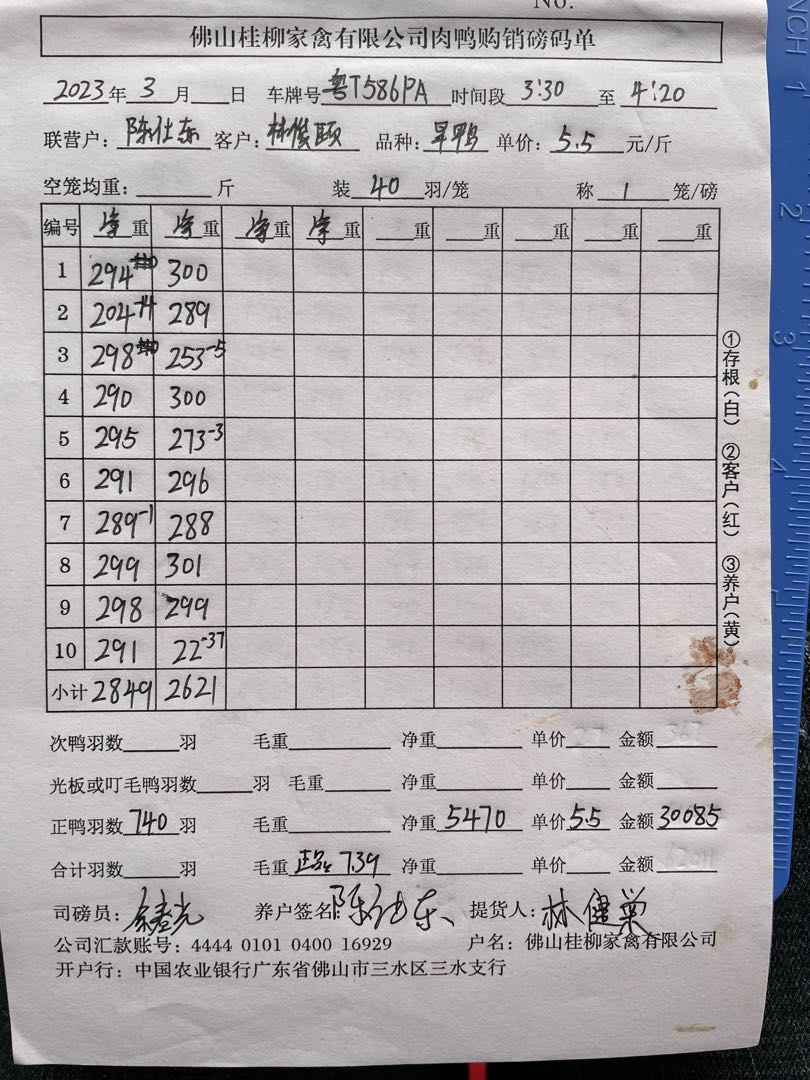 No.
佛山桂柳家禽有限公司肉鸭购销磅码单
2023年 3 月 日 车牌号 粤T586PA 时间段 3:30 至 4:20
联营户：陈仕东 客户：林俊颐 品种：旱鸭 单价：5.5 元/斤
空笼均重： 斤 装 40 羽/笼 称 1 笼/磅
编号 净重 净重 净重 净重 重 重 重 重 重
1 294 300
2 204 -14 289
3 298 253-5
4 290 300
5 295 273-3
6 291 296
7 289-1 288
8 299 301
9 298 299
10 291 22-37
小计 2849 2621
①存根（白） ②客户（红） ③养户（黄）
次鸭羽数 羽 毛重 净重 单价 金额
光板或叮毛鸭羽数 羽 毛重 净重 单价 金额
正鸭羽数 740 羽 毛重 净重 5470 单价 5.5 金额 30085
合计羽数 羽 毛重 7.39 净重 单价 金额
司磅员： 养户签名：陈仕东 提货人：林健
公司汇款账号：4444 0101 0400 16929 户名：佛山桂柳家禽有限公司
开户行：中国农业银行广东省佛山市三水区三水支行
INCH 1
2
3
4